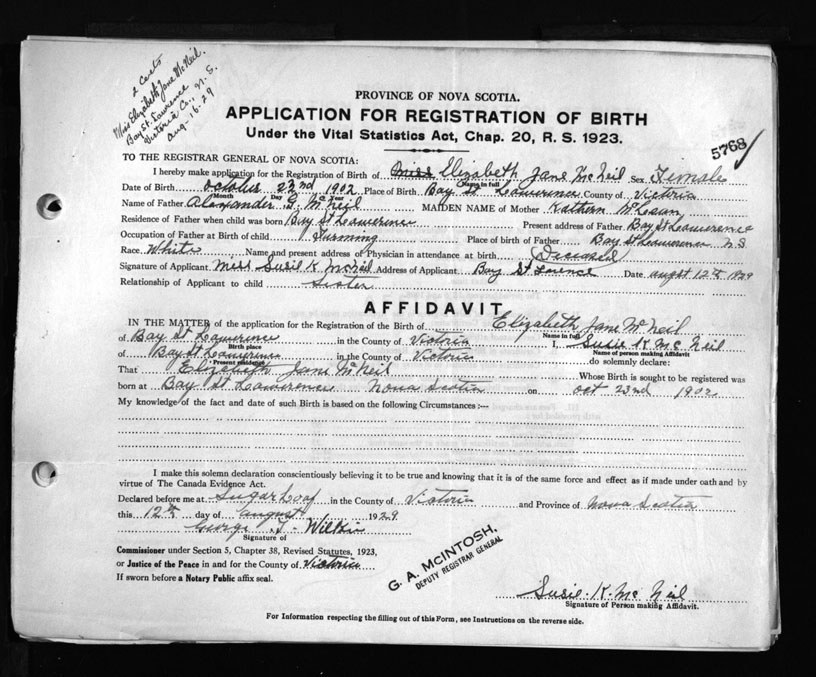 2 Certs
Miss Elizabeth Jane McNeil.
Bay St. Lawrence
Victoria Co., N.S.
Aug. 16-29
PROVINCE OF NOVA SCOTIA.
APPLICATION FOR REGISTRATION OF BIRTH
Under the Vital Statistics Act, Chap. 20, R. S. 1923.
5768
TO THE REGISTRAR GENERAL OF NOVA SCOTIA:
I hereby make application for the Registration of Birth of Miss Elizabeth Jane McNeil Sex Female
Name in full
Date of Birth October 23nd 1902 Place of Birth Bay St Lawerence County of Victoria
Month Day Year
Name of Father Alexander G. McNeil MAIDEN NAME of Mother Kathern McLean
Residence of Father when child was born Bay St Lawerence Present address of Father Bay St Lawerence
Occupation of Father at Birth of child Farming Place of birth of Father Bay St Lawerence N.S
Race White Name and present address of Physician in attendance at birth Deceased
Signature of Applicant Miss Susie K McNeil Address of Applicant Bay St Lorence Date augst 12th 1929
Relationship of Applicant to child Sister
AFFIDAVIT
IN THE MATTER of the application for the Registration of the Birth of Elizabeth Jane McNeil
Name in full
of Bay St Lawerence in the County of Victoria I, Susie K McNeil
Birth place Name of person making Affidavit
of Bay St Lawerence in the County of Victoria do solemnly declare:
Present residence
That Elizabeth Jane McNeil Whose Birth is sought to be registered was
born at Bay St Lawerence Nova Scotia on oct 23nd 1902
My knowledge of the fact and date of such Birth is based on the following Circumstances :—
I make this solemn declaration conscientiously believing it to be true and knowing that it is of the same force and effect as if made under oath and by
virtue of The Canada Evidence Act.
Declared before me at Sugar Loaf in the County of Victoria and Province of Nova Scotia
this 12th day of august 1929
George T. Wilkie
Signature of
Commissioner under Section 5, Chapter 38, Revised Statutes, 1923,
or Justice of the Peace in and for the County of Victoria
If sworn before a Notary Public affix seal.
G. A. McINTOSH,
DEPUTY REGISTRAR GENERAL
Susie. K. McNeil
Signature of Person making Affidavit.
For Information respecting the filling out of this Form, see Instructions on the reverse side.